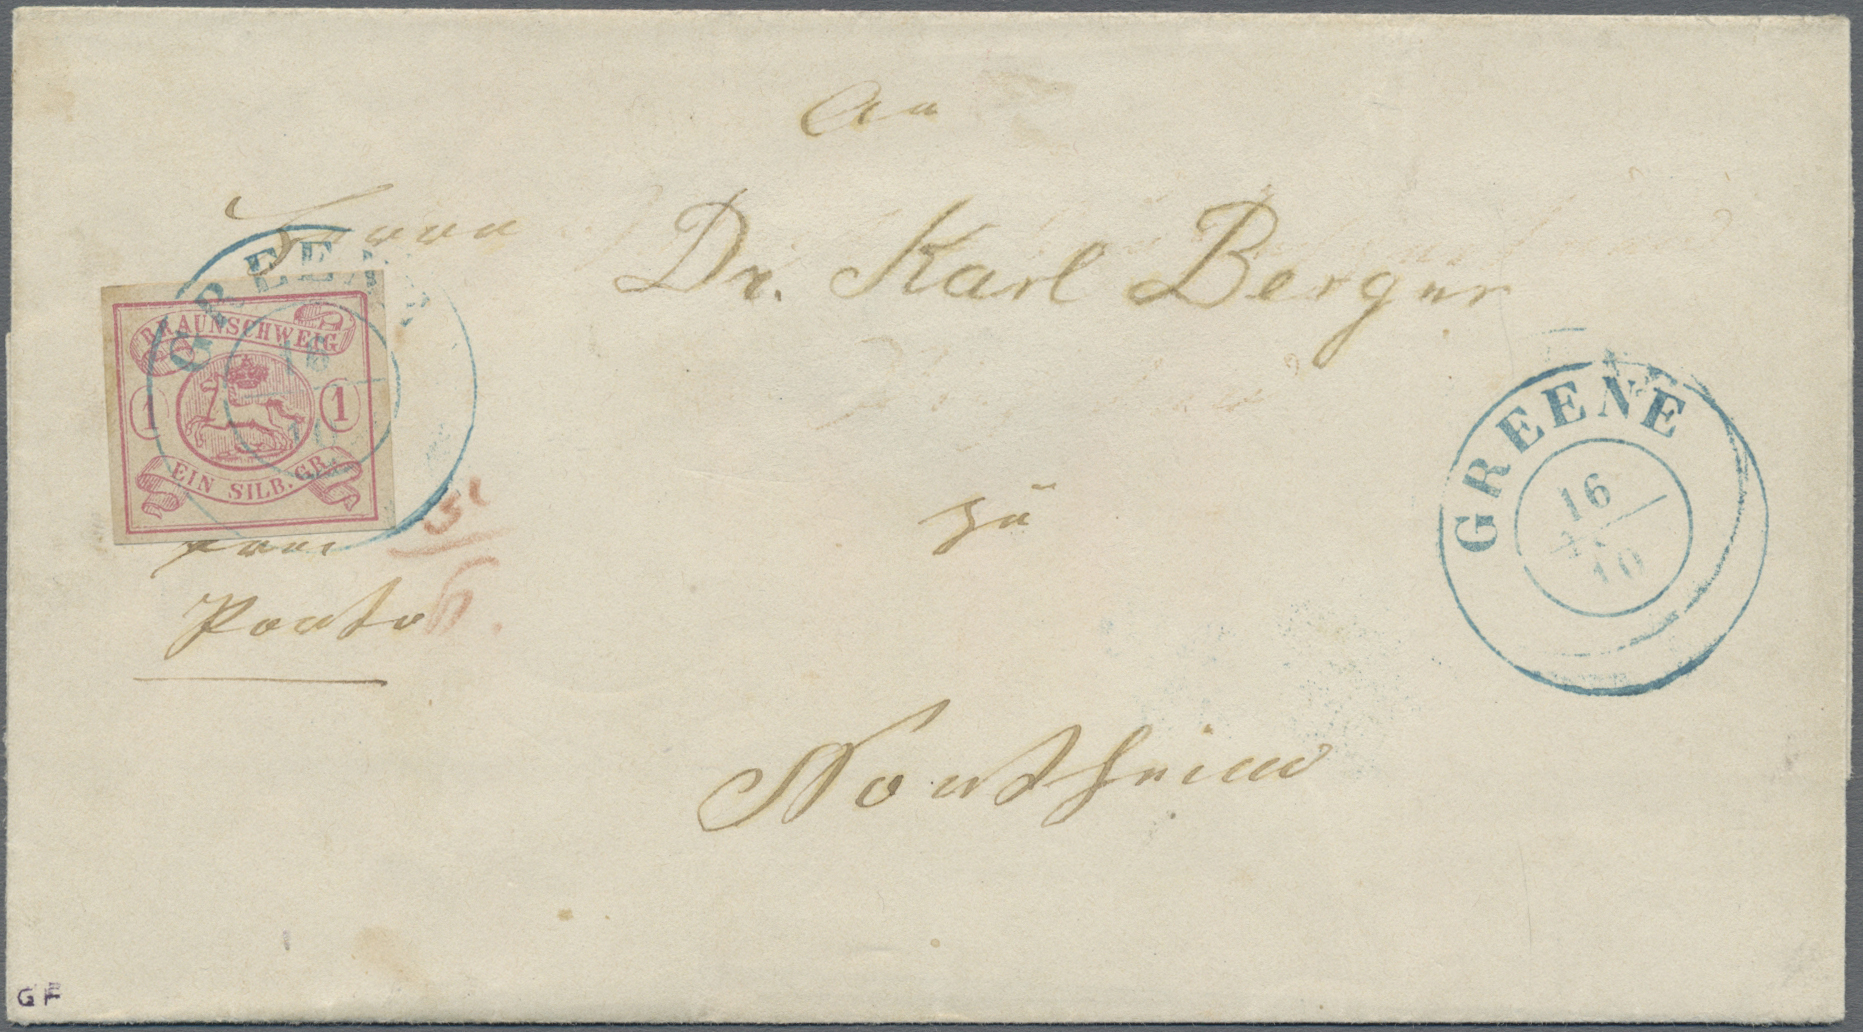 An
Herrn Dr. Karl Berger
BRAUNSCHWEIG
1 1
EIN SILB. GR.
GREENE
16
10
GREENE
16
10
zu
frei
Porto
Northeim
GF